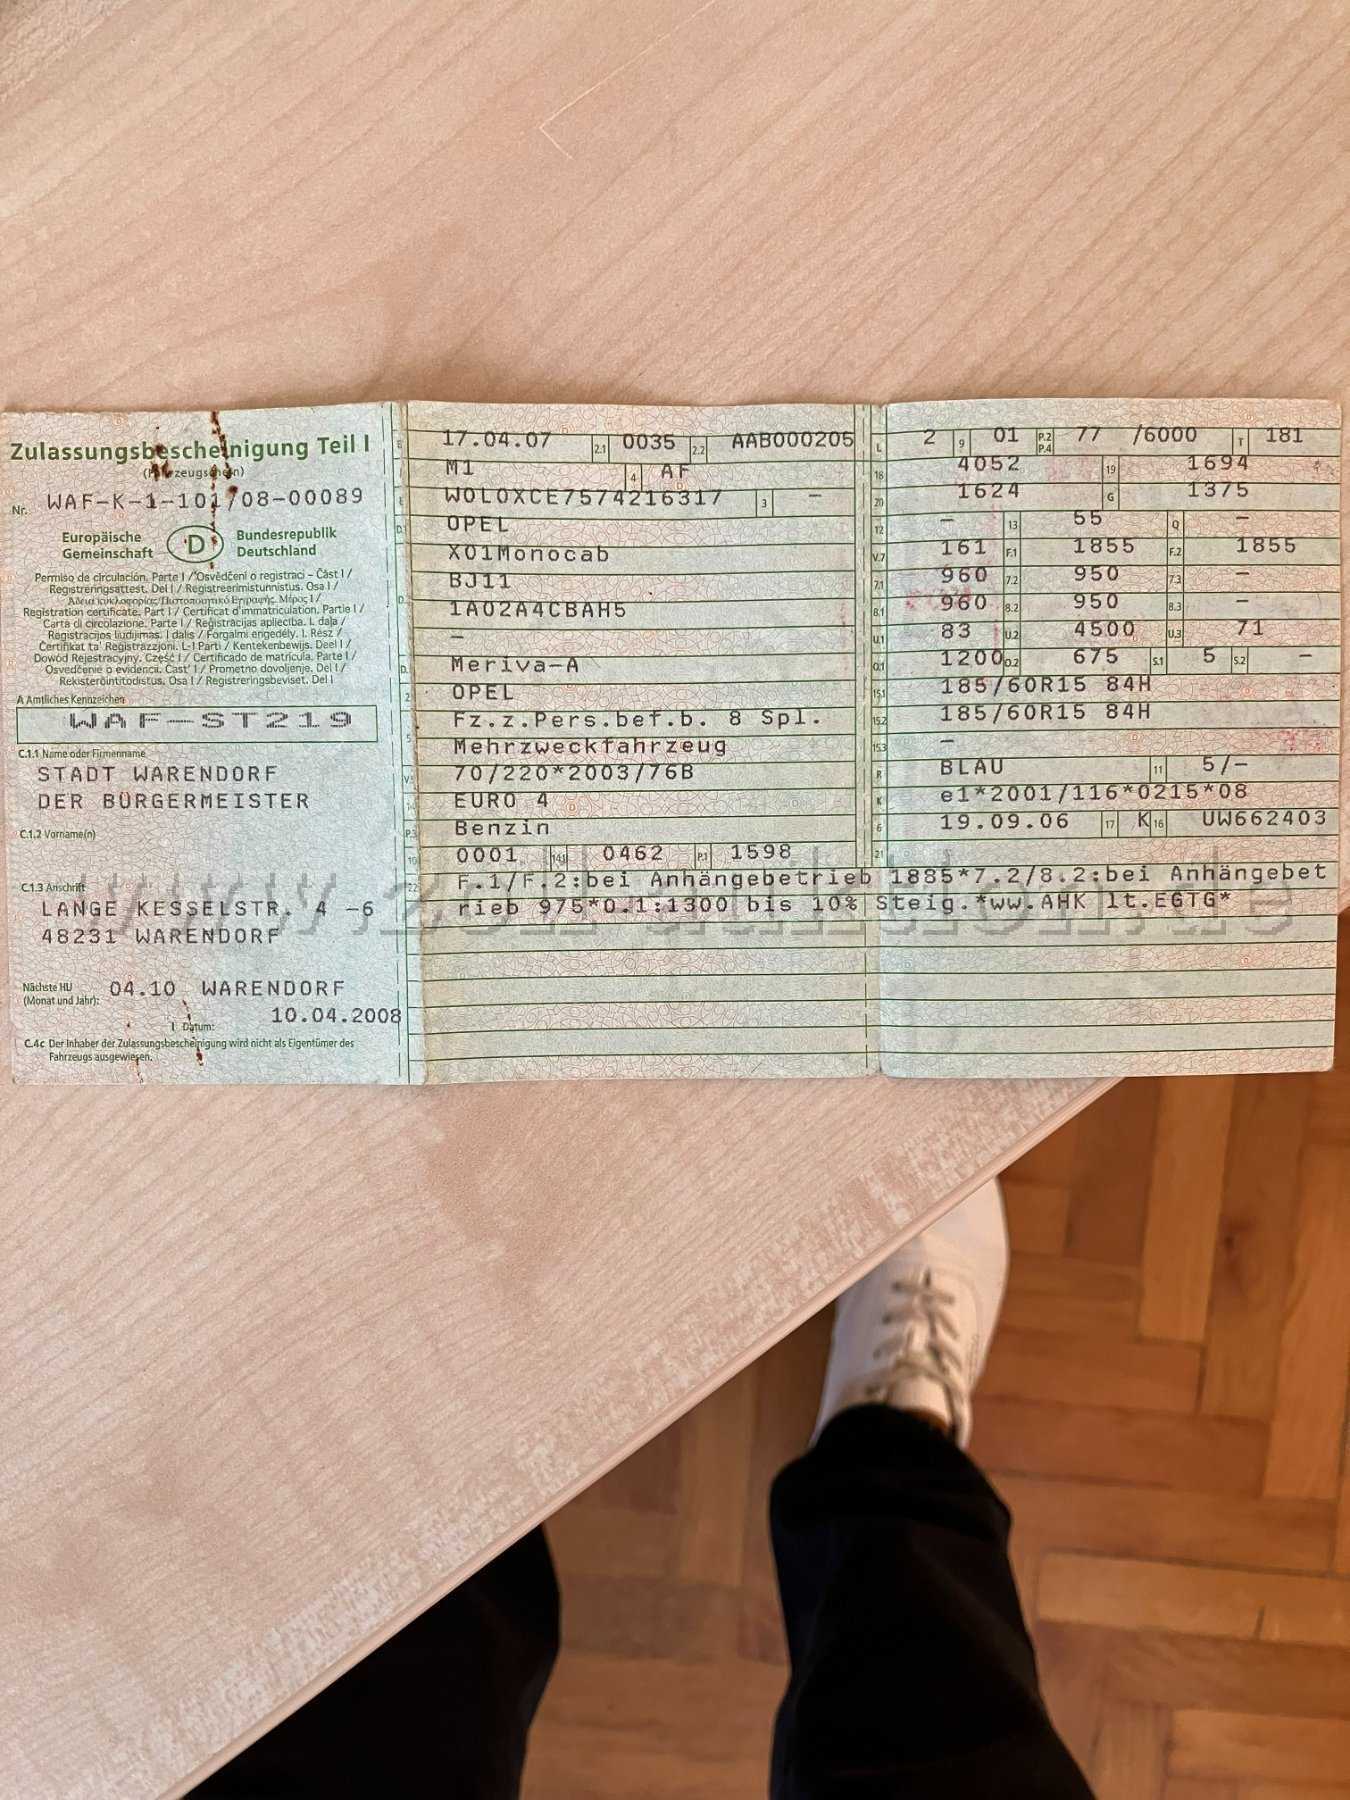 Zulassungsbescheinigung Teil I
(Fahrzeugschein)
Nr. WAF-K-1-101/08-00089
Europäische Gemeinschaft
D
Bundesrepublik Deutschland
Permiso de circulación. Parte I / Osvědčení o registraci – Část I /
Registreringsattest. Del I / Registreerimistunnistus. Osa I /
Άδεια κυκλοφορίας/Πιστοποιητικό Εγγραφής. Μέρος I /
Registration certificate. Part I / Certificat d'immatriculation. Partie I /
Carta di circolazione. Parte I / Reģistrācijas apliecība. I. daļa /
Registracijos liudijimas. I dalis / Forgalmi engedély. I. Rész /
Ċertifikat ta' Reġistrazzjoni. L-1 Parti / Kentekenbewijs. Deel I /
Dowód Rejestracyjny. Część I / Certificado de matrícula. Parte I /
Osvedčenie o evidencii. Časť I / Prometno dovoljenje. Del I /
Rekisteröintitodistus. Osa I / Registreringsbeviset. Del I
A Amtliches Kennzeichen
WAF-ST219
C.1.1 Name oder Firmenname
STADT WARENDORF
DER BÜRGERMEISTER
C.1.2 Vorname(n)
C.1.3 Anschrift
LANGE KESSELSTR. 4 -6
48231 WARENDORF
Nächste HU (Monat und Jahr): 04.10 WARENDORF
I Datum: 10.04.2008
C.4c Der Inhaber der Zulassungsbescheinigung wird nicht als Eigentümer des
Fahrzeugs ausgewiesen.
B 17.04.07 2.1 0035 2.2 AAB000205
J M1 4 AF
E W0L0XCE7574216317 3 –
D.1 OPEL
X01Monocab
BJ11
1A02A4CBAH5
–
D.3 Meriva-A
2 OPEL
5 Fz.z.Pers.bef.b. 8 Spl.
Mehrzweckfahrzeug
V.9 70/220*2003/76B
14 EURO 4
P.3 Benzin
10 0001 14.1 0462 P.1 1598
L 2 9 01 P.2 P.4 77 /6000 T 181
18 4052 19 1694
20 1624 G 1375
12 – 13 55 Q –
V.7 161 F.1 1855 F.2 1855
7.1 960 7.2 950 7.3 –
8.1 960 8.2 950 8.3 –
U.1 83 U.2 4500 U.3 71
O.1 1200 O.2 675 S.1 5 S.2 –
15.1 185/60R15 84H
15.2 185/60R15 84H
15.3 –
R BLAU 11 5/–
K e1*2001/116*0215*08
6 19.09.06 17 K 16 UW662403
21
22 F.1/F.2:bei Anhängebetrieb 1885*7.2/8.2:bei Anhängebet
rieb 975*0.1:1300 bis 10% Steig.*ww.AHK lt.EGTG*
www.zoll-auktion.de